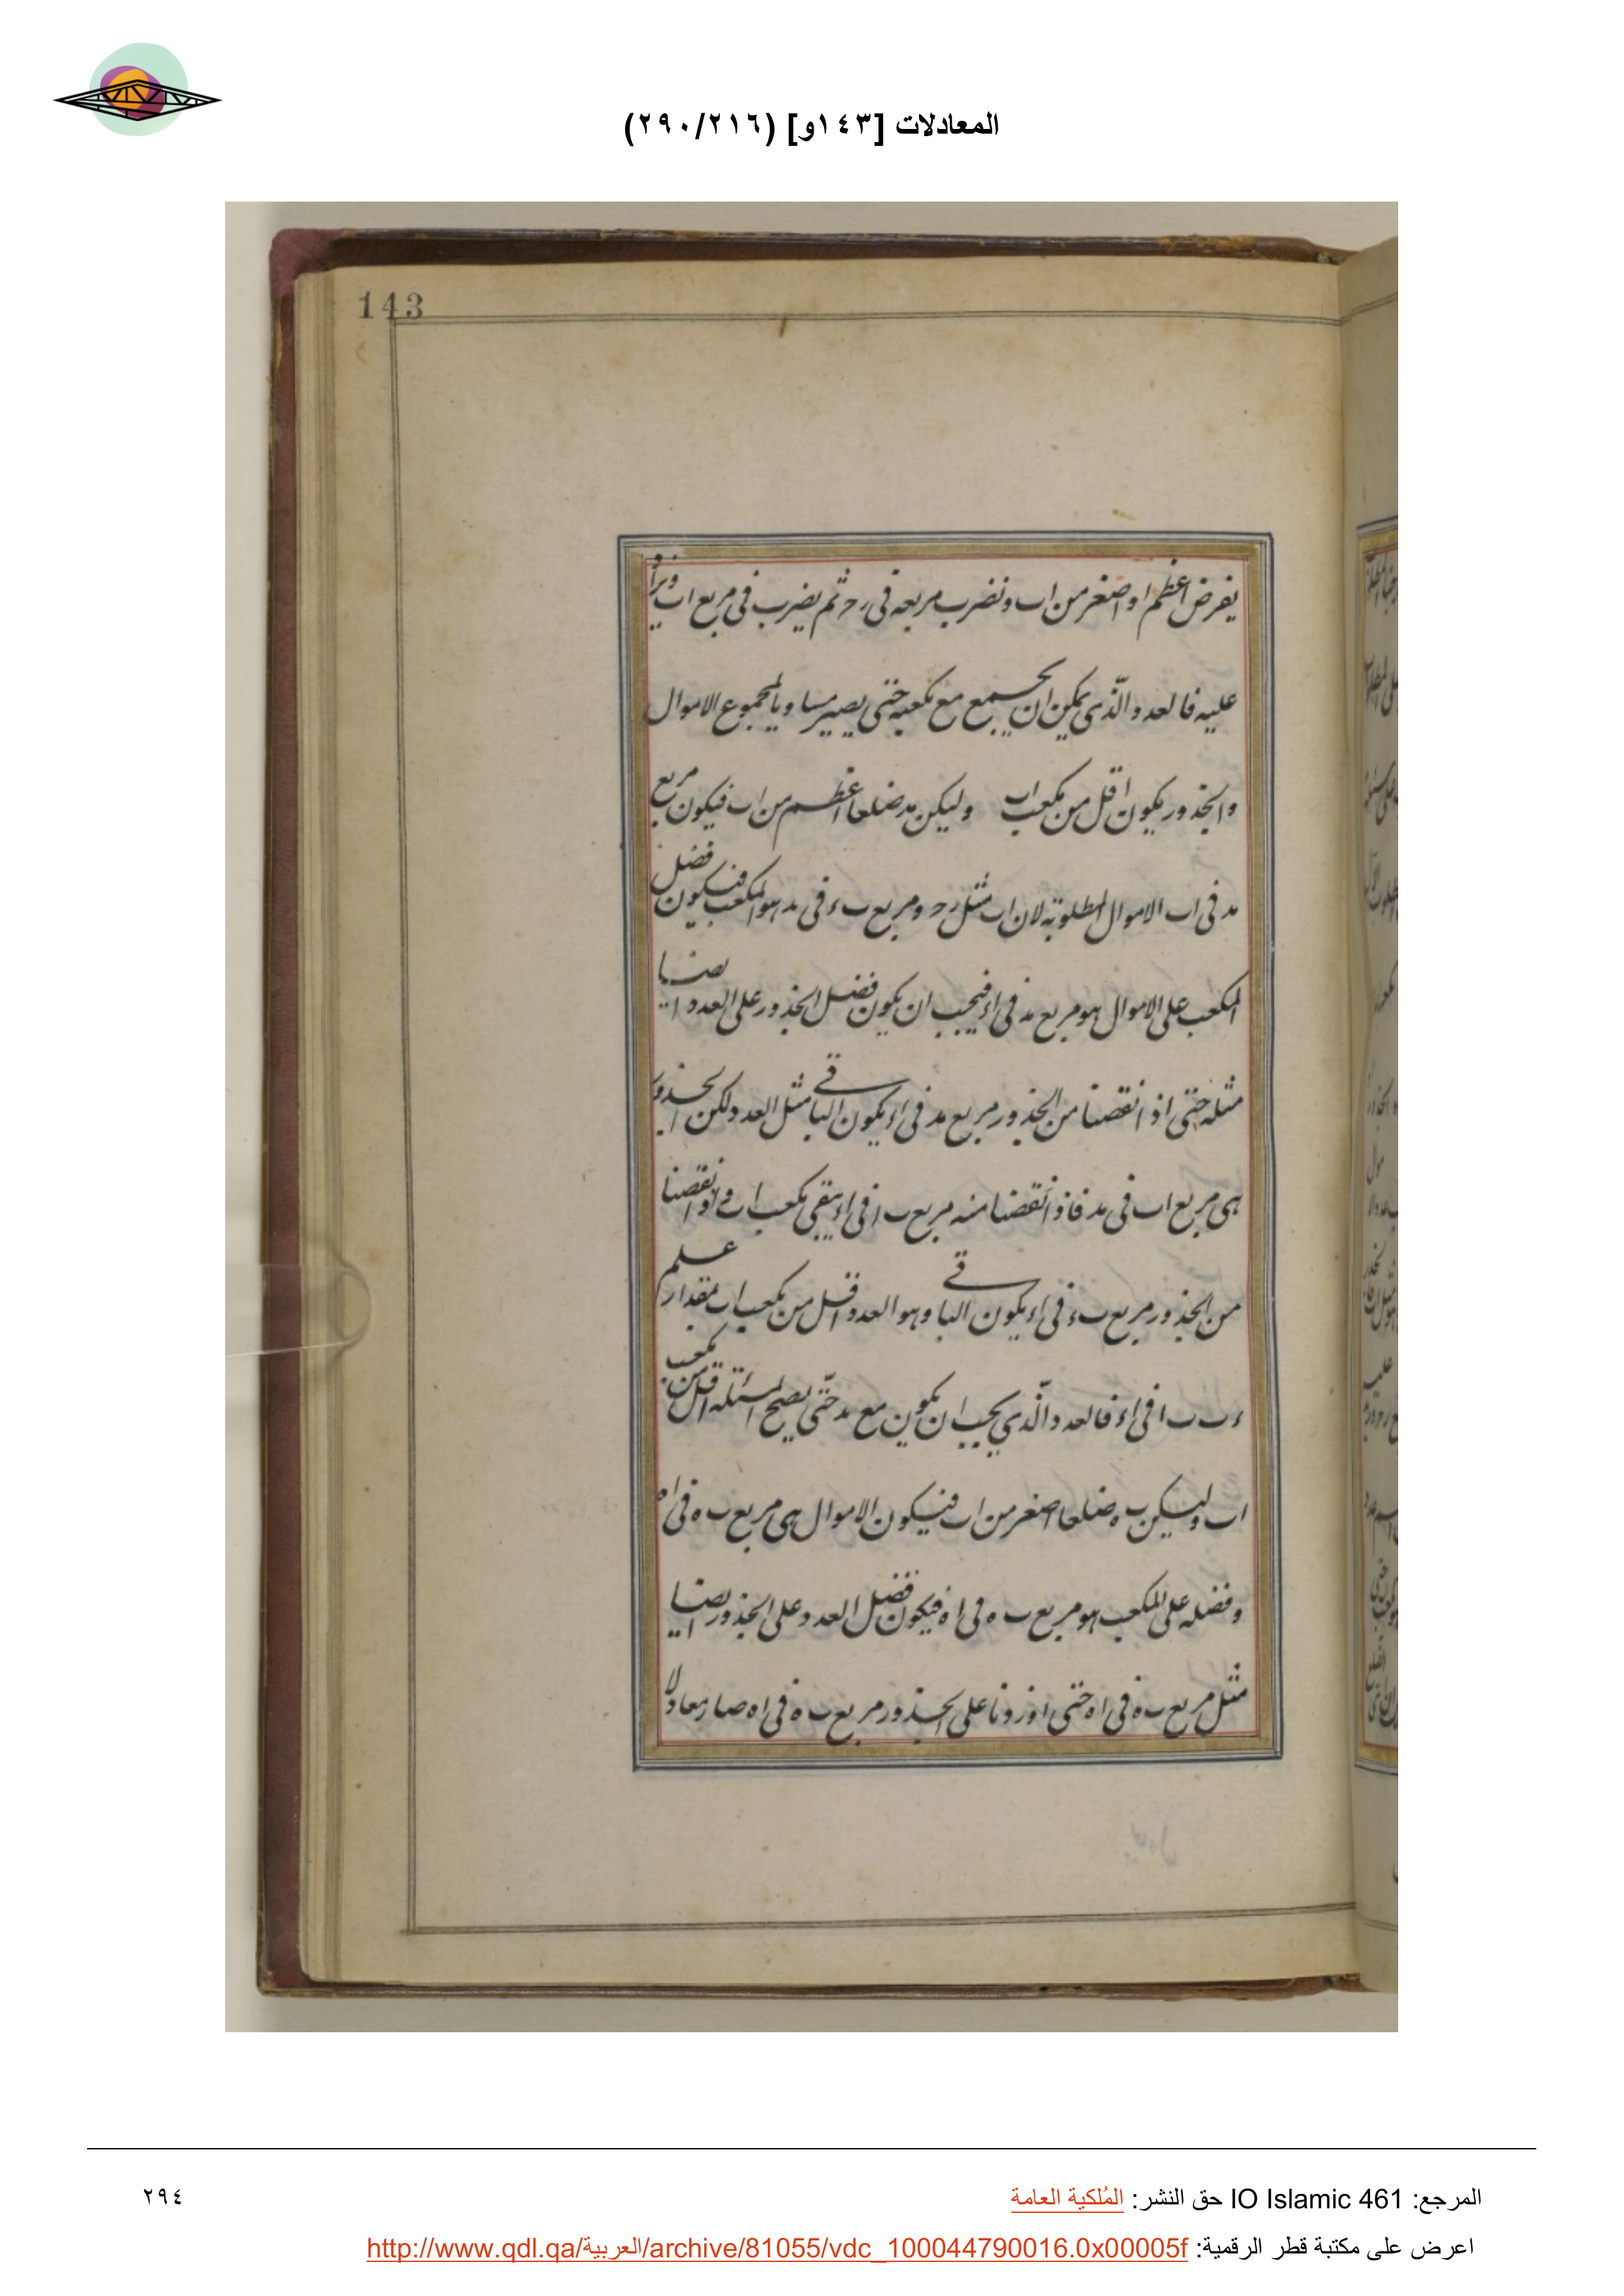 المعادلات [١٤٣و] (٢٩٠/٢١٦)
143
يفرض اعظم او اصغر من اب ونضرب مربعه فى رح ثم يضرب فى مربع اب
عليه فالعدد الّذى يمكن ان يجمع مع مكعبه حتى يصير مساويا لمجموع الاموال
والجذور يكون اقل من مكعب اب وليكن مد ضلعا اعظم من اب فيكون مربع
مد فى اب الاموال المطلوبة لان اب مثل رح ومربع ب‍ء فى مد هو المكعب فيكون فضل
المكعب على الاموال هو مربع مد فى اء فيجب ان يكون فضل الجذور على العدد ايضا
مثله حتى اذا نقصنا من الجذور مربع مد فى اء يكون الباقى مثل العدد لكن الجذور
هى مربع اب فى مد فاذا نقصنا منه مربع ب‍ا فى اء يبقى مكعب اب واذا نقصنا
من الجذور مربع ب‍ء فى اء يكون الباقى وهو العدد اقل من مكعب اب بمقدار علم
ء‍ب ب‍ا فى اء فالعدد الّذي يجب ان يكون مع مد حتّى يصح المسئلة اقل من مكعب
اب وليكن ب‍ه ضلعا اصغر من اب فيكون الاموال هى مربع ب‍ه فى اه
وفضله على المكعب هو مربع ب‍ه فى اه فيكون فضل العدد على الجذور ايضا
مثل مربع ب‍ه فى اه حتى اذا زدنا على الجذور مربع ب‍ه فى اه صار معادلا
المرجع: IO Islamic 461 حق النشر: المُلكية العامة
٢٩٤
اعرض على مكتبة قطر الرقمية: http://www.qdl.qa/العربية/archive/81055/vdc_100044790016.0x00005f